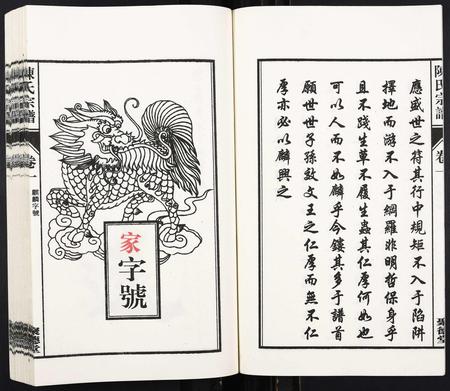 陳氏宗譜
卷一
應盛世之符其行中規矩不入于陷阱
擇地而游不入于綱羅非明哲保身乎
且不踐生草不履生蟲其仁厚何如也
可以人而不如麟乎今鏤其多于譜首
願世世子孫效文王之仁厚而無不仁
厚亦必以麟興之
家字號
陳氏宗譜
卷一
麒麟字號